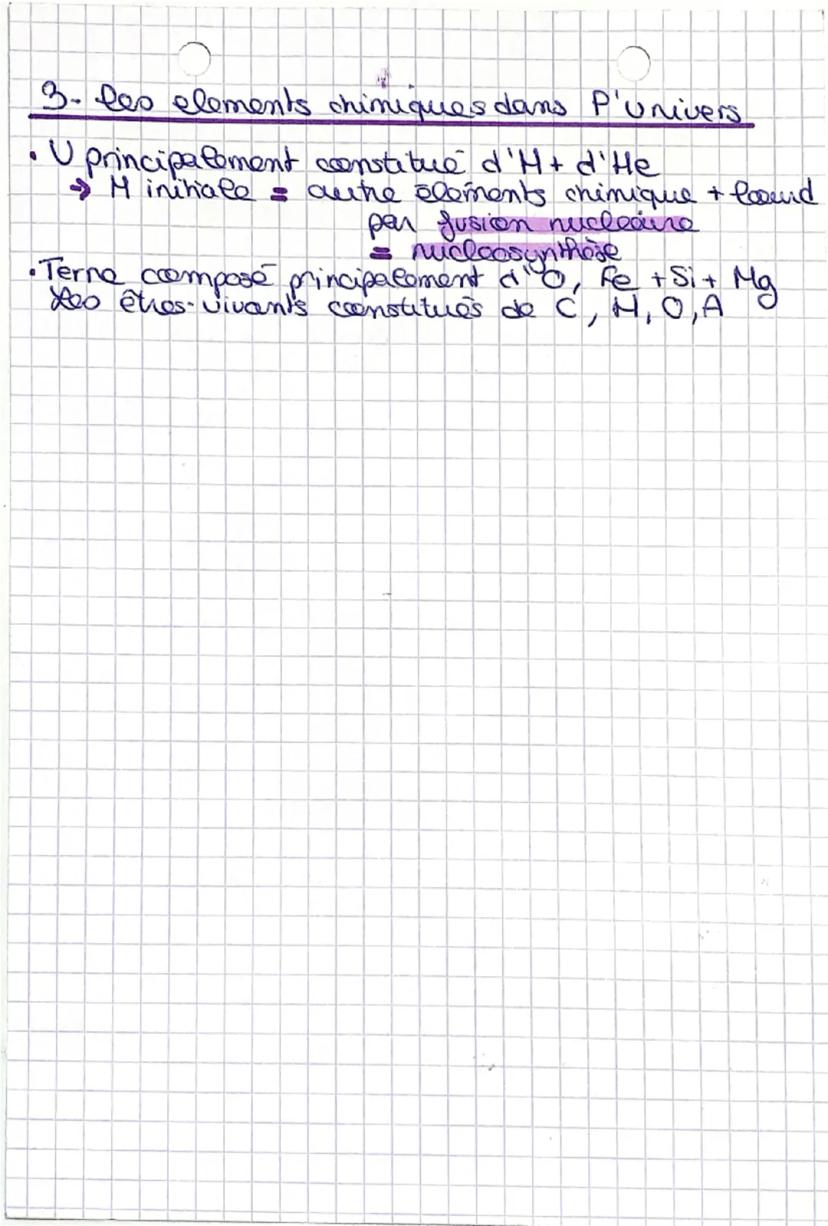 3- les elements chimiques dans l'univers
• U principalement constitué d'H + d'He
→ H initiale = autre éléments chimique + lourd
par fusion nucléaire
= nucléosynthèse
• Terre composé principalement d'O, Fe + Si + Mg
les êtres-vivants constitués de C, H, O, A